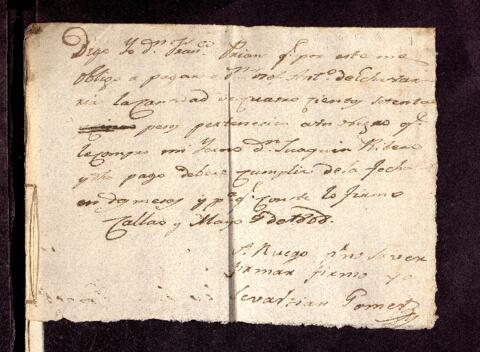 Digo Yo Dn. Franco. Prian qe. por este me
obligo a pagar a Dn. Anto. de Echevar
ria la Cantidad de quatro cientos setenta
pesos pertenecien a un negro qe.
le compro mi Yerno Dn. Juaquin Ribero
y Dho pago debere Cumplir de la fecha
en dos meses y pa. qe. Conste lo firmo
Callao y Mayo de
A Ruego pr. no saver
firmar firmo yo
Sevastian Gomez